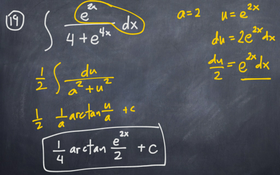 19 ∫ e^{2x} / (4 + e^{4x}) dx
a = 2 u = e^{2x}
du = 2e^{2x} dx
du/2 = e^{2x} dx
1/2 ∫ du / (a² + u²)
1/2 1/a arctan u/a + c
1/4 arctan e^{2x}/2 + C